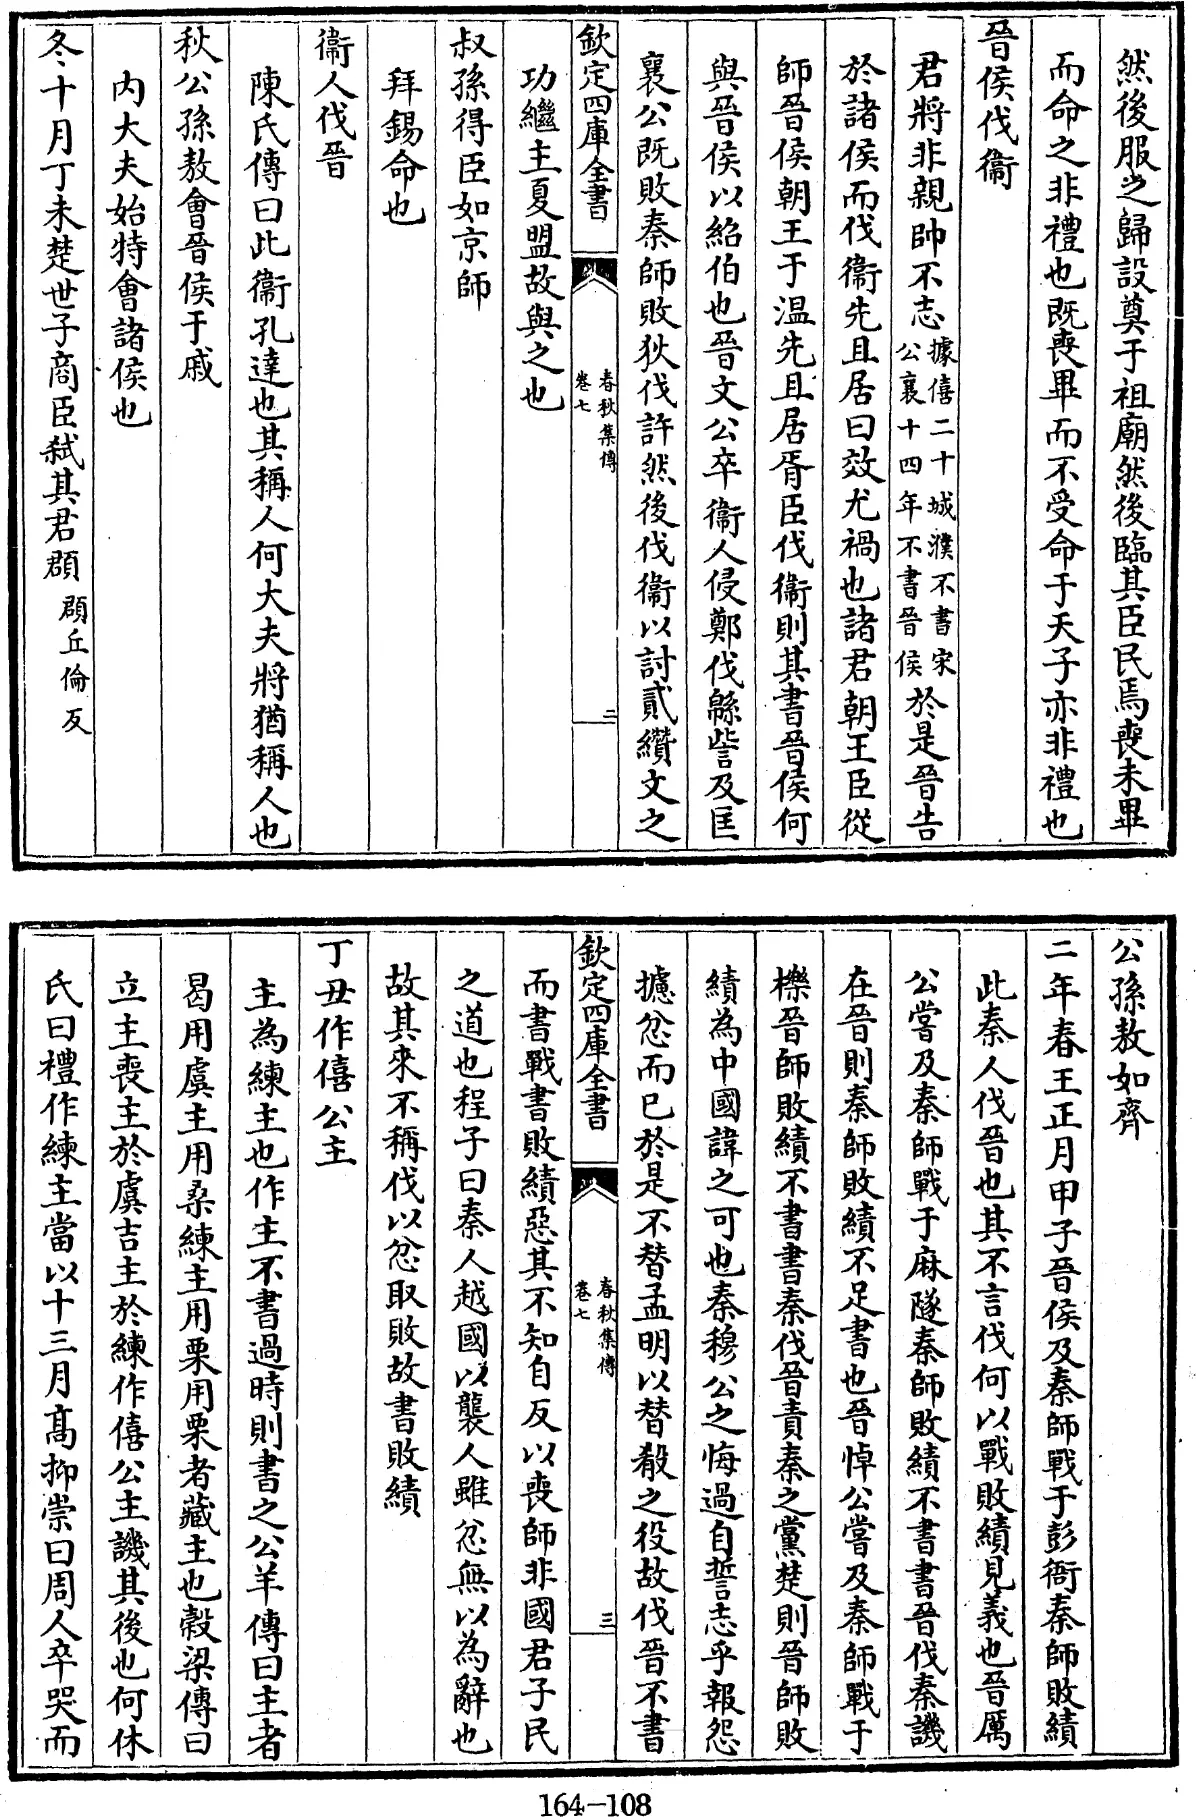 然後服之歸設奠于祖廟然後臨其臣民焉喪未畢
而命之非禮也既喪畢而不受命于天子亦非禮也
晉侯伐衞
君將非親帥不志據僖二十城濮不書宋公襄十四年不書晉侯於是晉告
於諸侯而伐衞先且居曰效尤禍也諸君朝王臣從
師晉侯朝王于温先且居胥臣伐衞則其書晉侯何
與晉侯以紹伯也晉文公卒衞人侵鄭伐緜訾及匡
襄公既敗秦師敗狄伐許然後伐衞以討貳纘文之
欽定四庫全書
春秋集傳
卷七
二
功繼主夏盟故與之也
叔孫得臣如京師
拜錫命也
衞人伐晉
陳氏傳曰此衞孔達也其稱人何大夫將猶稱人也
秋公孫敖會晉侯于戚
内大夫始特會諸侯也
冬十月丁未楚世子商臣弑其君頵頵丘倫反
公孫敖如齊
二年春王正月甲子晉侯及秦師戰于彭衙秦師敗績
此秦人伐晉也其不言伐何以戰敗績見義也晉厲
公嘗及秦師戰于麻隧秦師敗績不書書晉伐秦譏
在晉則秦師敗績不足書也晉悼公嘗及秦師戰于
櫟晉師敗績不書書秦伐晉責秦之黨楚則晉師敗
績為中國諱之可也秦穆公之悔過自誓志乎報怨
攄忿而已於是不替孟明以替殽之役故伐晉不書
欽定四庫全書
春秋集傳
卷七
三
而書戰書敗績惡其不知自反以喪師非國君子民
之道也程子曰秦人越國以襲人雖忿無以為辭也
故其來不稱伐以忿取敗故書敗績
丁丑作僖公主
主為練主也作主不書過時則書之公羊傳曰主者
曷用虞主用桑練主用栗用栗者藏主也穀梁傳曰
立主喪主於虞吉主於練作僖公主譏其後也何休
氏曰禮作練主當以十三月髙抑崇曰周人卒哭而
164-108